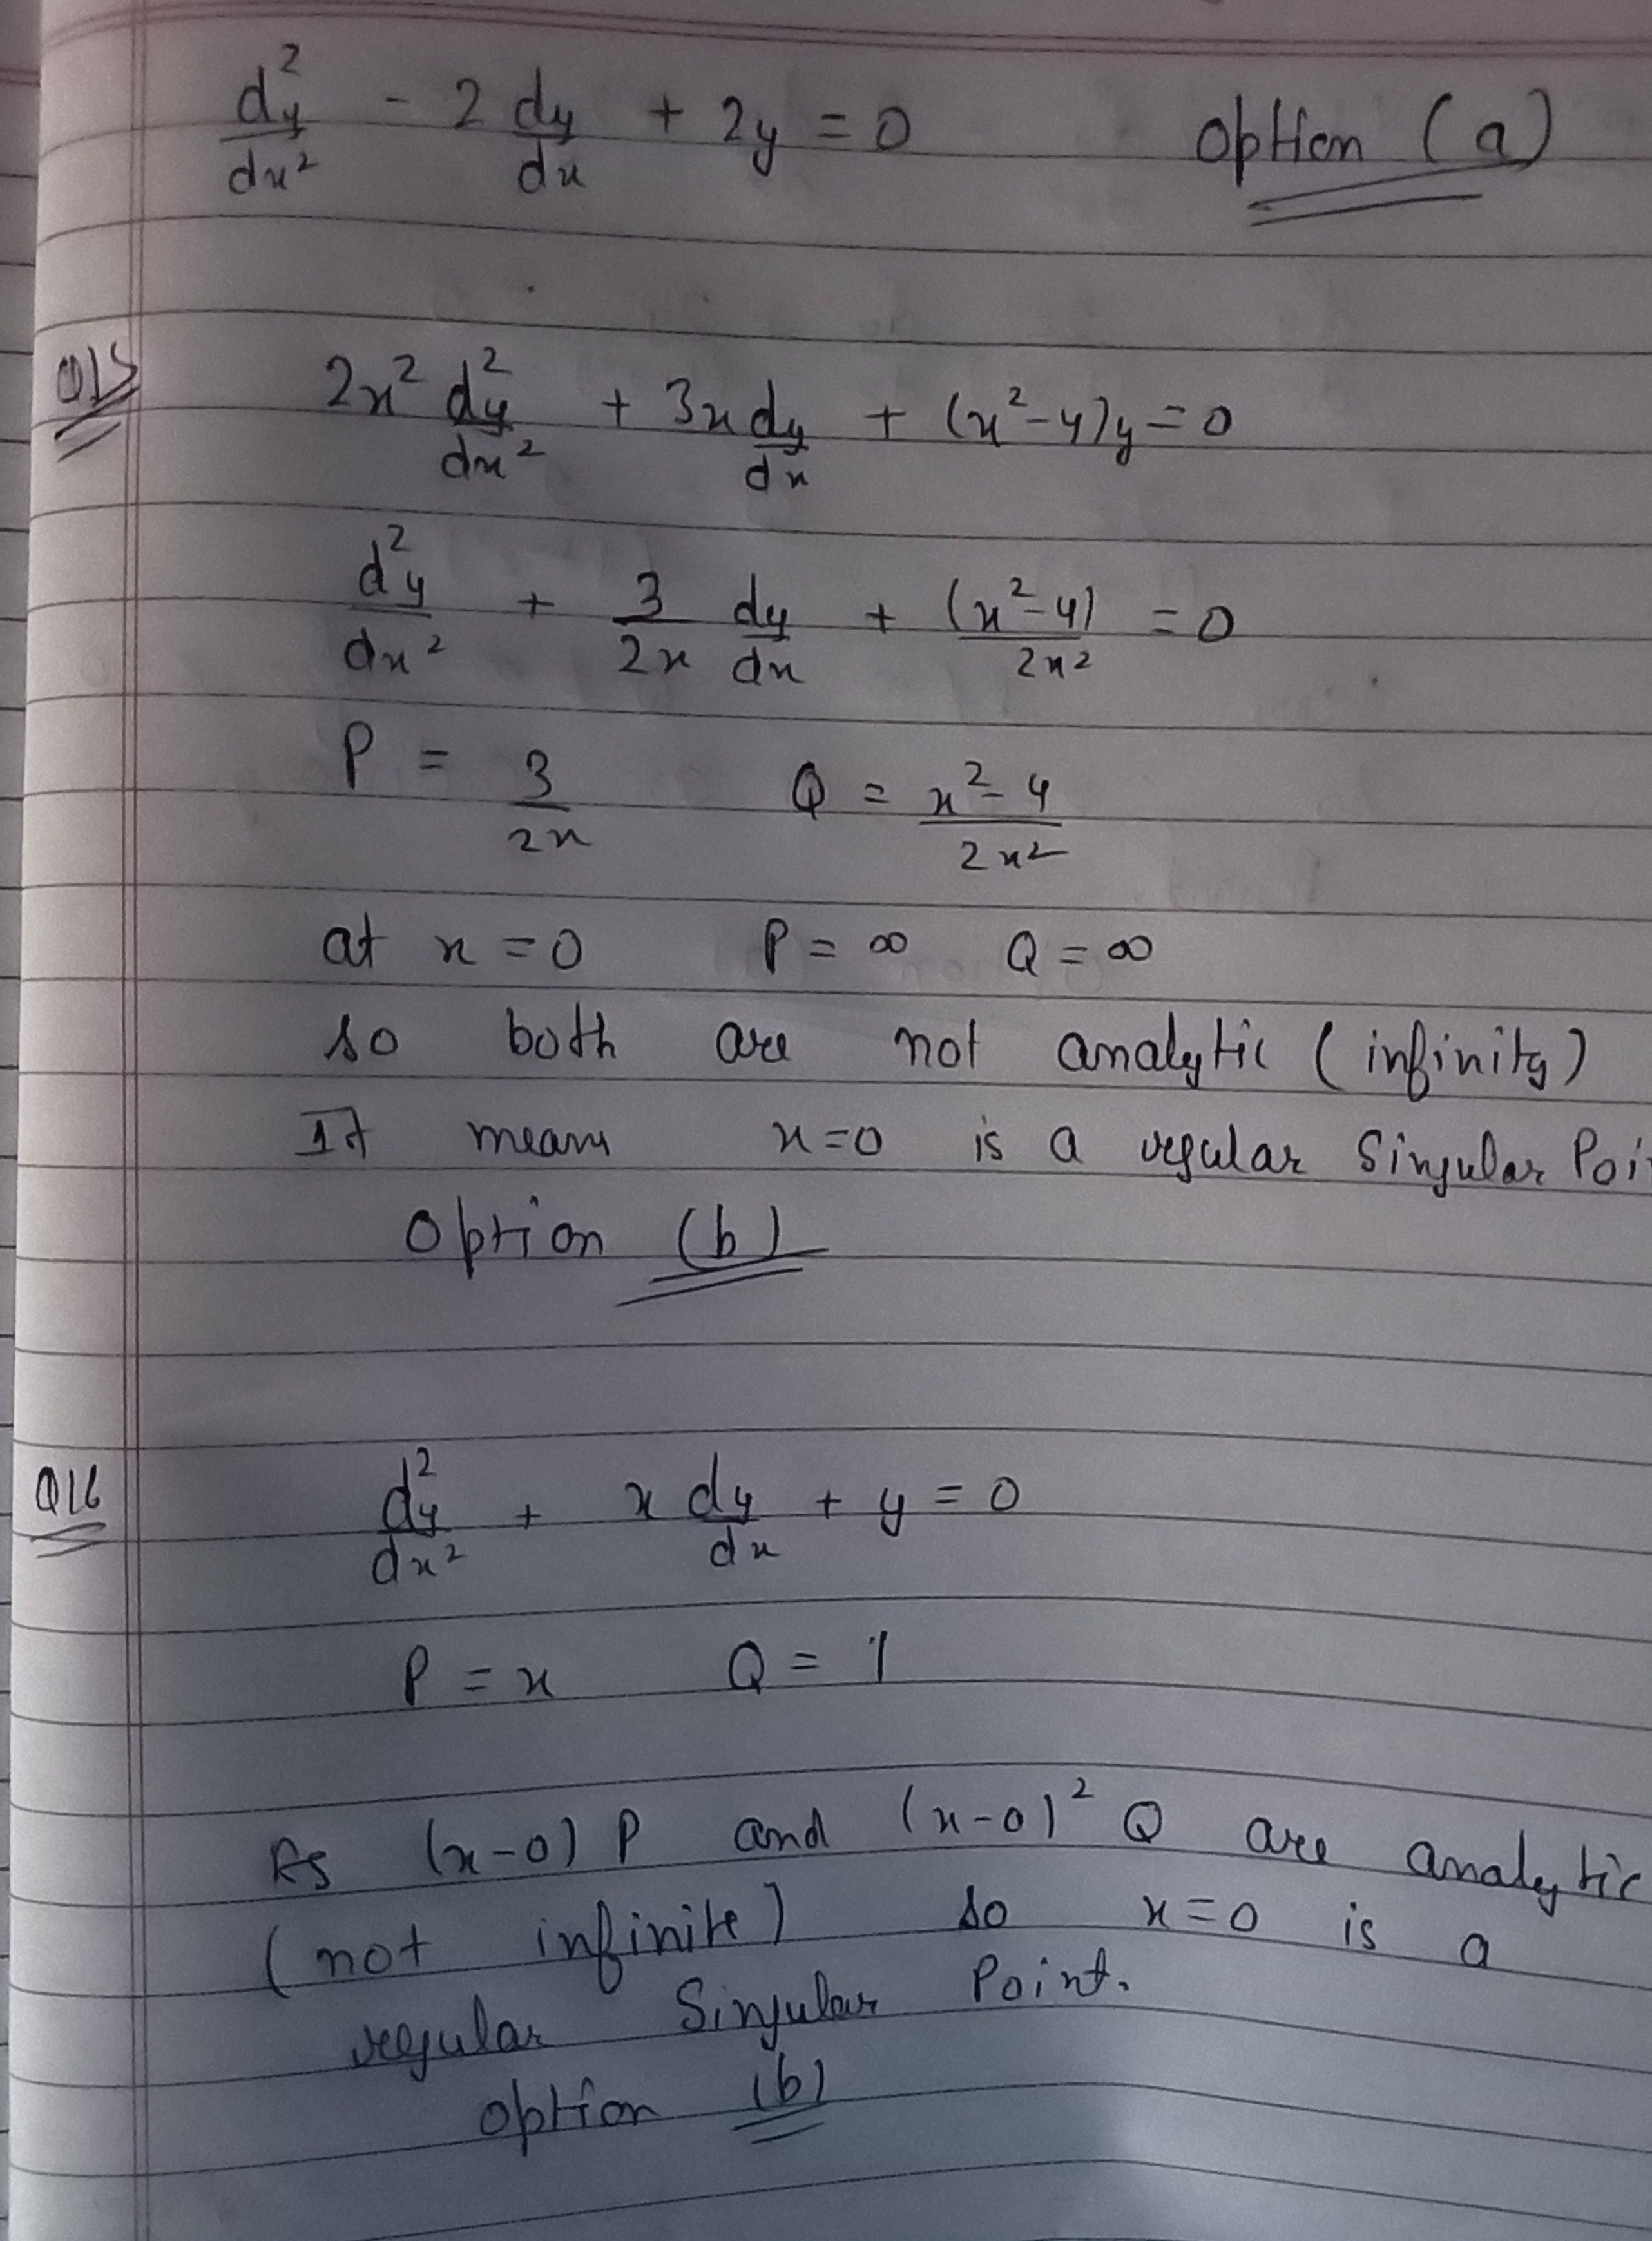 d²y/dx² - 2 dy/dx + 2y = 0 option (a)
Q15 2x² d²y/dx² + 3x dy/dx + (x²-4)y = 0
d²y/dx² + 3/2x dy/dx + (x²-4)/2x² = 0
P = 3/2x Q = x²-4/2x²
at x = 0 P = ∞ Q = ∞
so both are not analytic (infinity)
It means x=0 is a regular Singular Poi
Option (b)
Q16 d²y/dx² + x dy/dx + y = 0
P = x Q = 1
As (x-0) P and (x-0)² Q are analytic
(not infinite) so x=0 is a
regular Singular Point.
option (b)